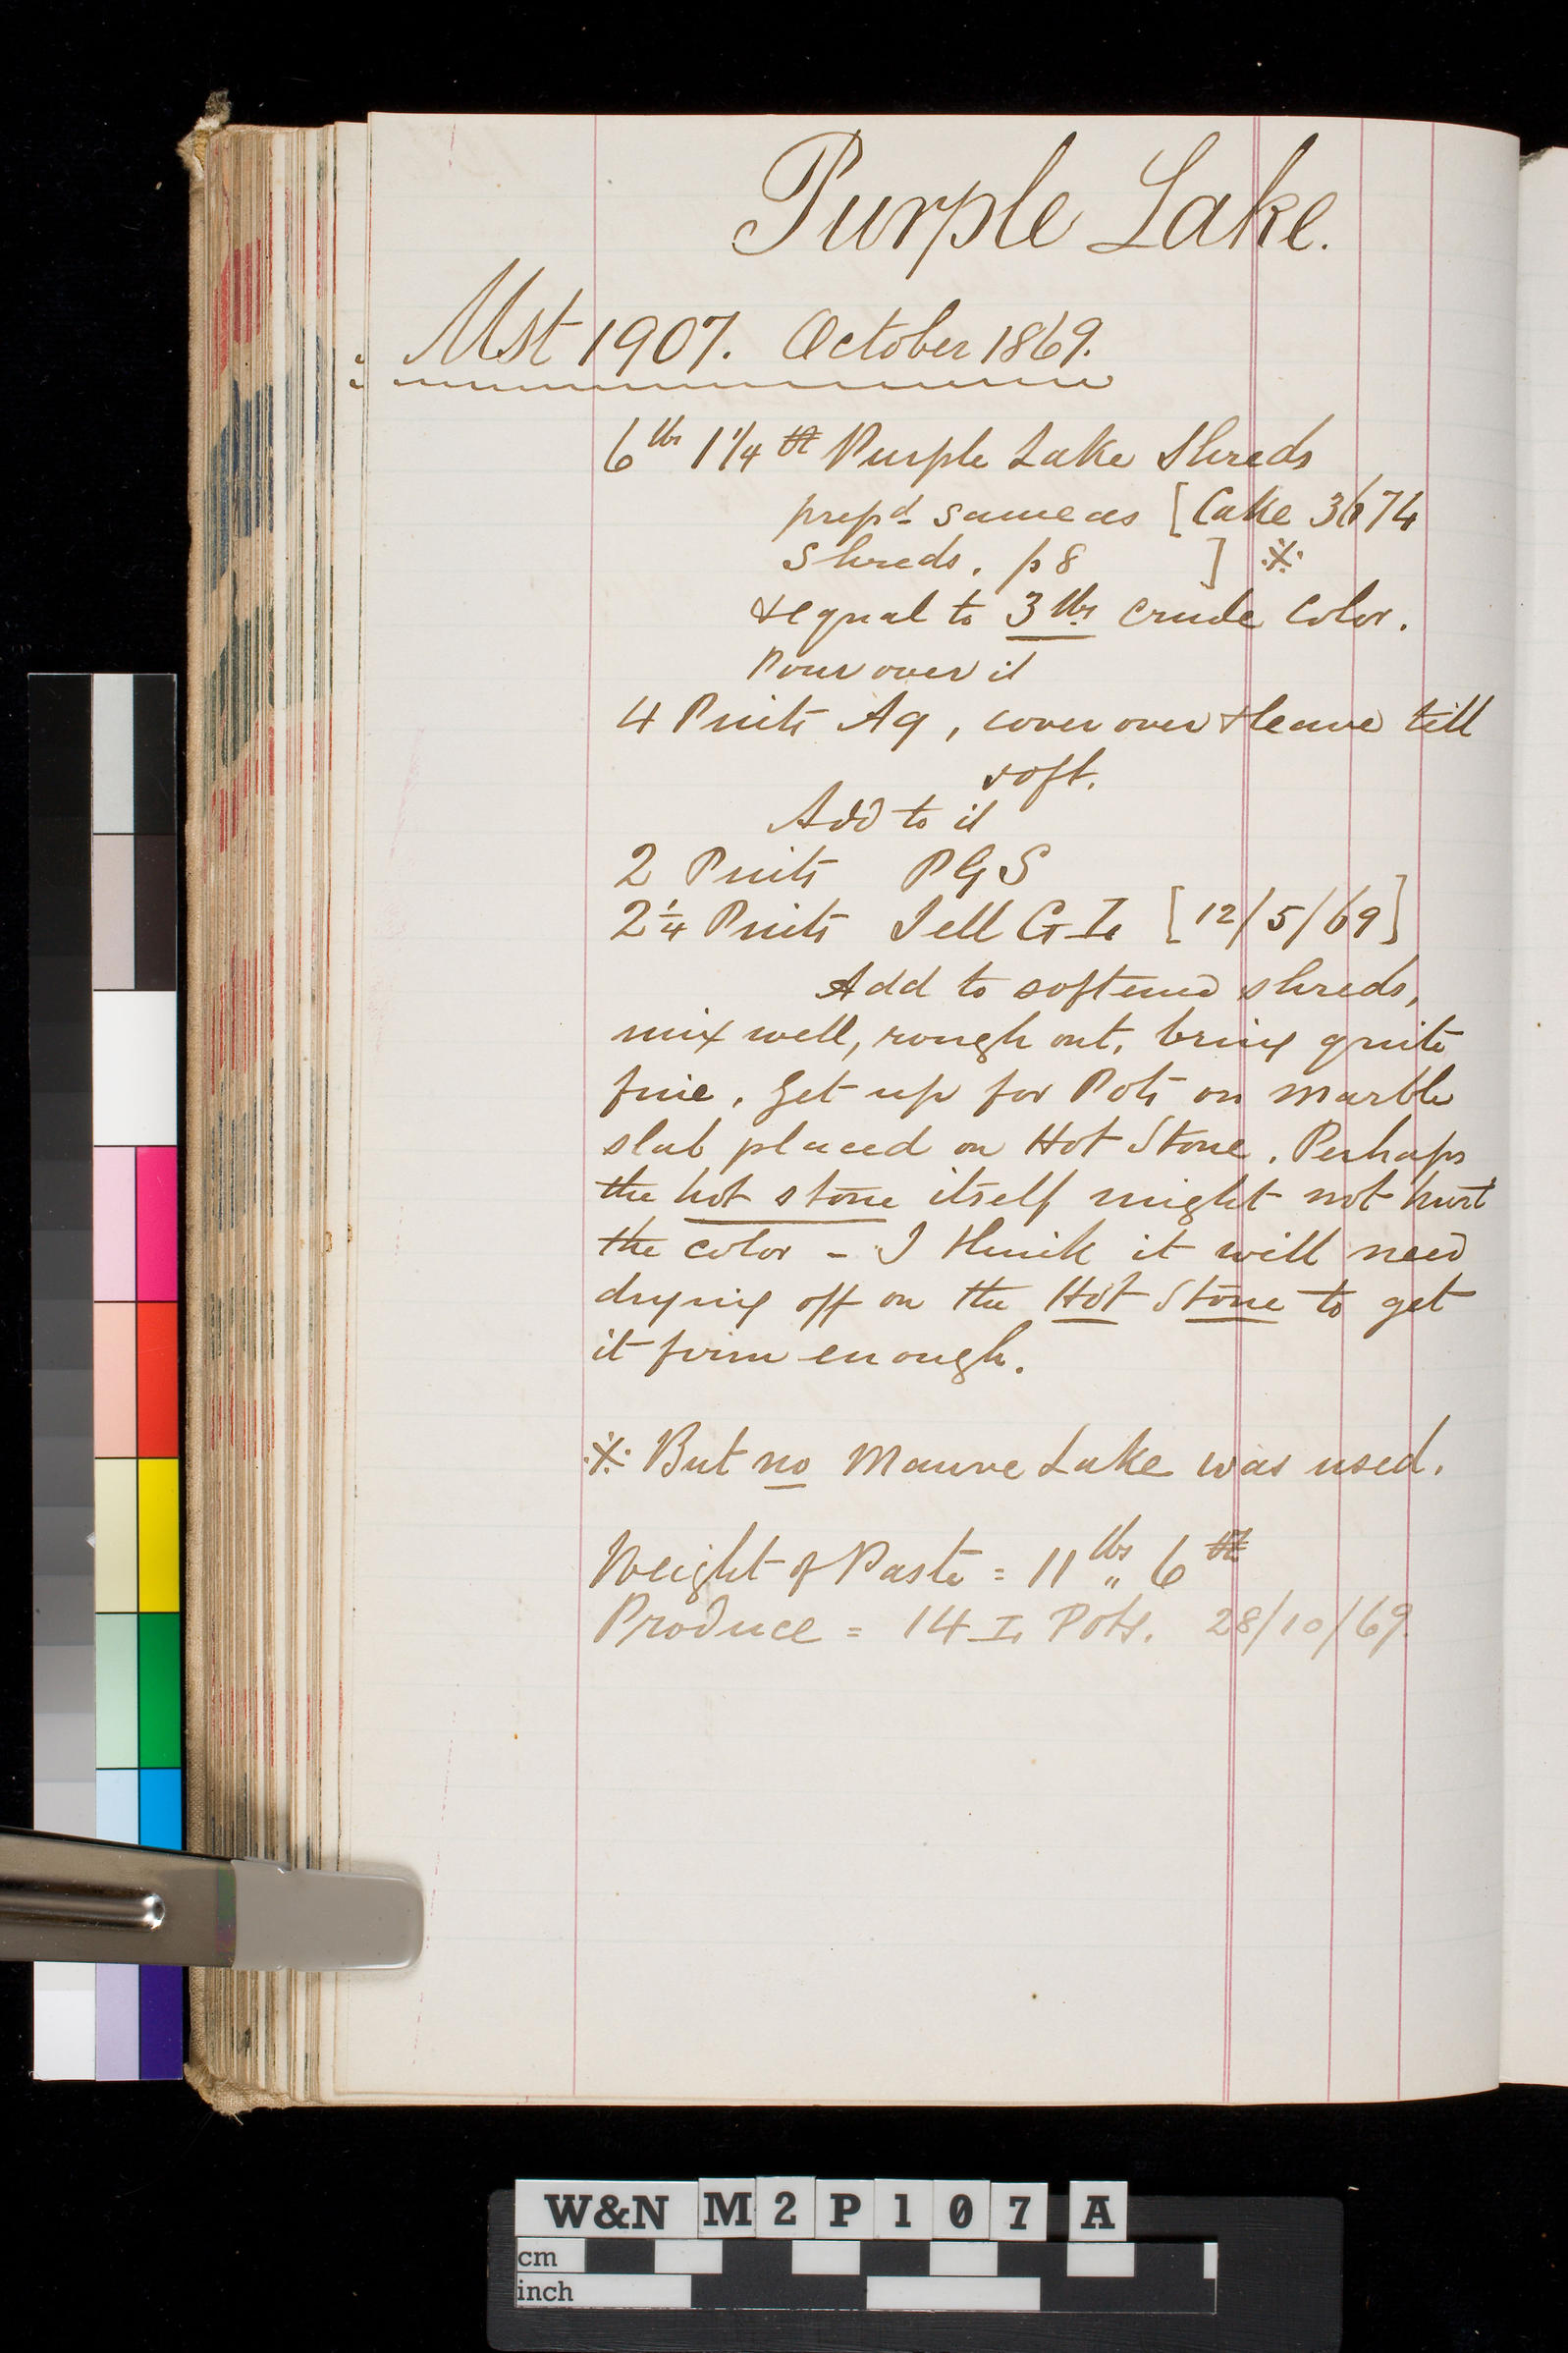 Purple Lake.
Mst 1907. October 1869.
6 lbs 1 1/4 Purple Lake Shreds
prepd same as [Cake 3674
Shreds. p 8 ] ※
& equal to 3 lbs crude color.
Pour over it
4 Pints Aq, cover over & leave till
soft.
Add to it
2 Pints PGS
2 1/4 Pints Jell G [12/5/69]
Add to softened shreds,
mix well, rough out, bring quite
fine. Get up for Pots on marble
slab placed on Hot Stone. Perhaps
the hot stone itself might not hurt
the color - I think it will need
drying off on the Hot Stone to get
it firm enough.
※ But no Mauve Lake was used.
Weight of Paste = 11 lbs " 6
Produce = 14 Pots. 28/10/69.
W&N M2P107 A
cm
inch